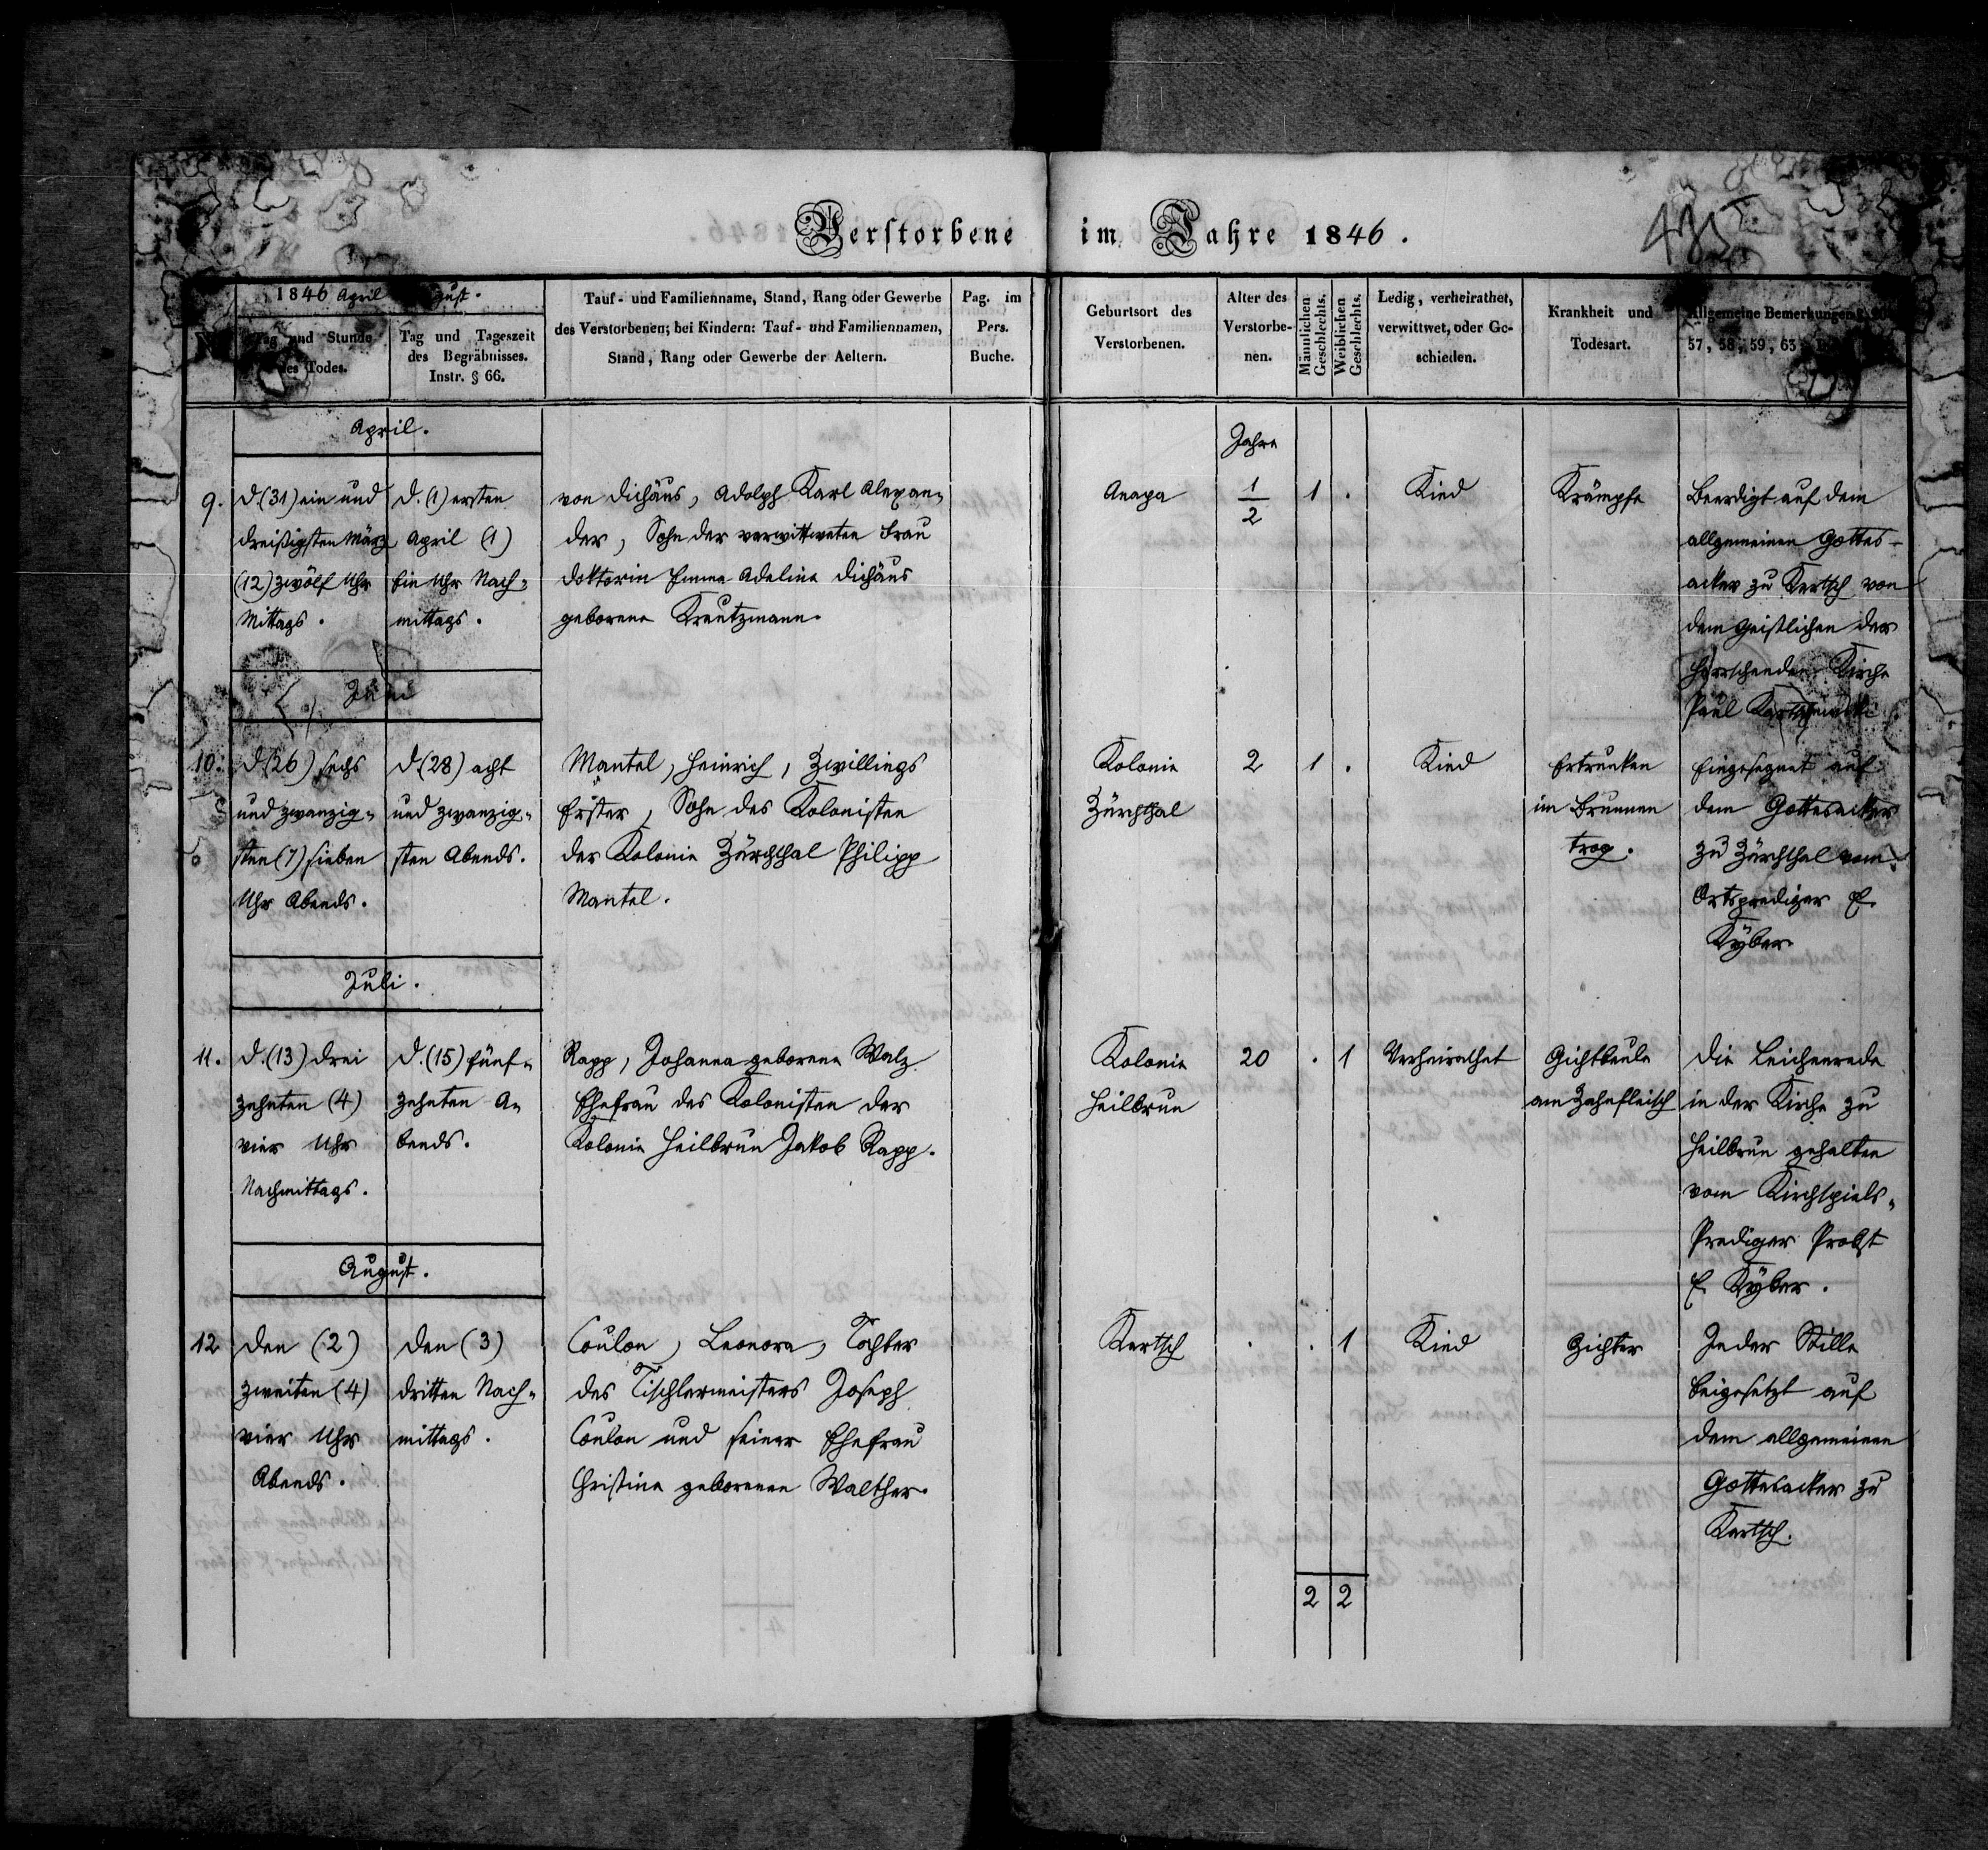 Verstorbene im Jahre 1846.
1846 April
Tag und Stunde des Todes.
Tag und Tageszeit des Begräbnisses. Instr. § 66.
Tauf- und Familienname, Stand, Rang oder Gewerbe
des Verstorbenen; bei Kindern: Tauf- und Familiennamen,
Stand, Rang oder Gewerbe der Aeltern.
Pag. im Pers. Buche.
Geburtsort des Verstorbenen.
Alter des Verstorbe-nen.
Männlichen Geschlechts.
Weiblichen Geschlechts.
Ledig, verheirathet, verwittwet, oder Ge-schieden.
Krankheit und Todesart.
Allgemeine Bemerkungen
57, 58, 59, 63
April.
Jahre
9.
d. (31) ein und
dreißigsten März
(12) zwölf Uhr
Mittags.
d. (1) ersten
April (1)
Ein Uhr Nach-
mittags.
von Dichäus, Adolph Karl Alexan-
der, Sohn der verwittweten Frau
Doktorin Emma Adeline Dichäus
geborene Kreutzmann.
Anapa
1/2
1 .
Kind
Krämpfe
Beerdigt auf dem
allgemeinen Gottes-
acker zu Kertsch von
dem Geistlichen der
herrschenden Kirche
Paul
Juni
10.
d (26) sechs
und zwanzig-
sten (7) sieben
Uhr Abends.
d (28) acht
und zwanzig-
sten Abends.
Mantel, Heinrich, Zwillings
Erster, Sohn des Kolonisten
der Kolonie Zürchthal Philipp
Mantel.
Kolonie
Zürchthal
2
1 .
Kind
Ertrunken
im Brunnen
trog.
Eingesegnet auf
dem Gottesacker
zu Zürchthal vom
Ortsprediger E.
Kÿber
Juli.
11.
d. (13) drei
zehnten (4)
vier Uhr
Nachmittags.
d. (15) fünf-
zehnten A-
bends.
Rapp, Johanna geborene Walz
Ehefrau des Kolonisten der
Kolonie Heilbrun Jakob Rapp.
Kolonie
Heilbrun
20
. 1
Verheirathet
Gichtbeule
am Zahnfleisch
Die Leichenrede
in der Kirche zu
Heilbrun gehalten
vom Kirchspiels-
Prediger Probst
E. Kÿber.
August.
12
den (2)
zweiten (4)
vier Uhr
Abends.
den (3)
dritten Nach-
mittags.
Coulon, Leonora, Tochter
des Tischlermeisters Joseph
Coulon und seiner Ehefrau
Christine geborenen Walther.
Kertsch
.
. 1
Kind
Gichter
In der Stille
beigesetzt auf
dem allgemeinen
Gottesacker zu
Kertsch.
2 2